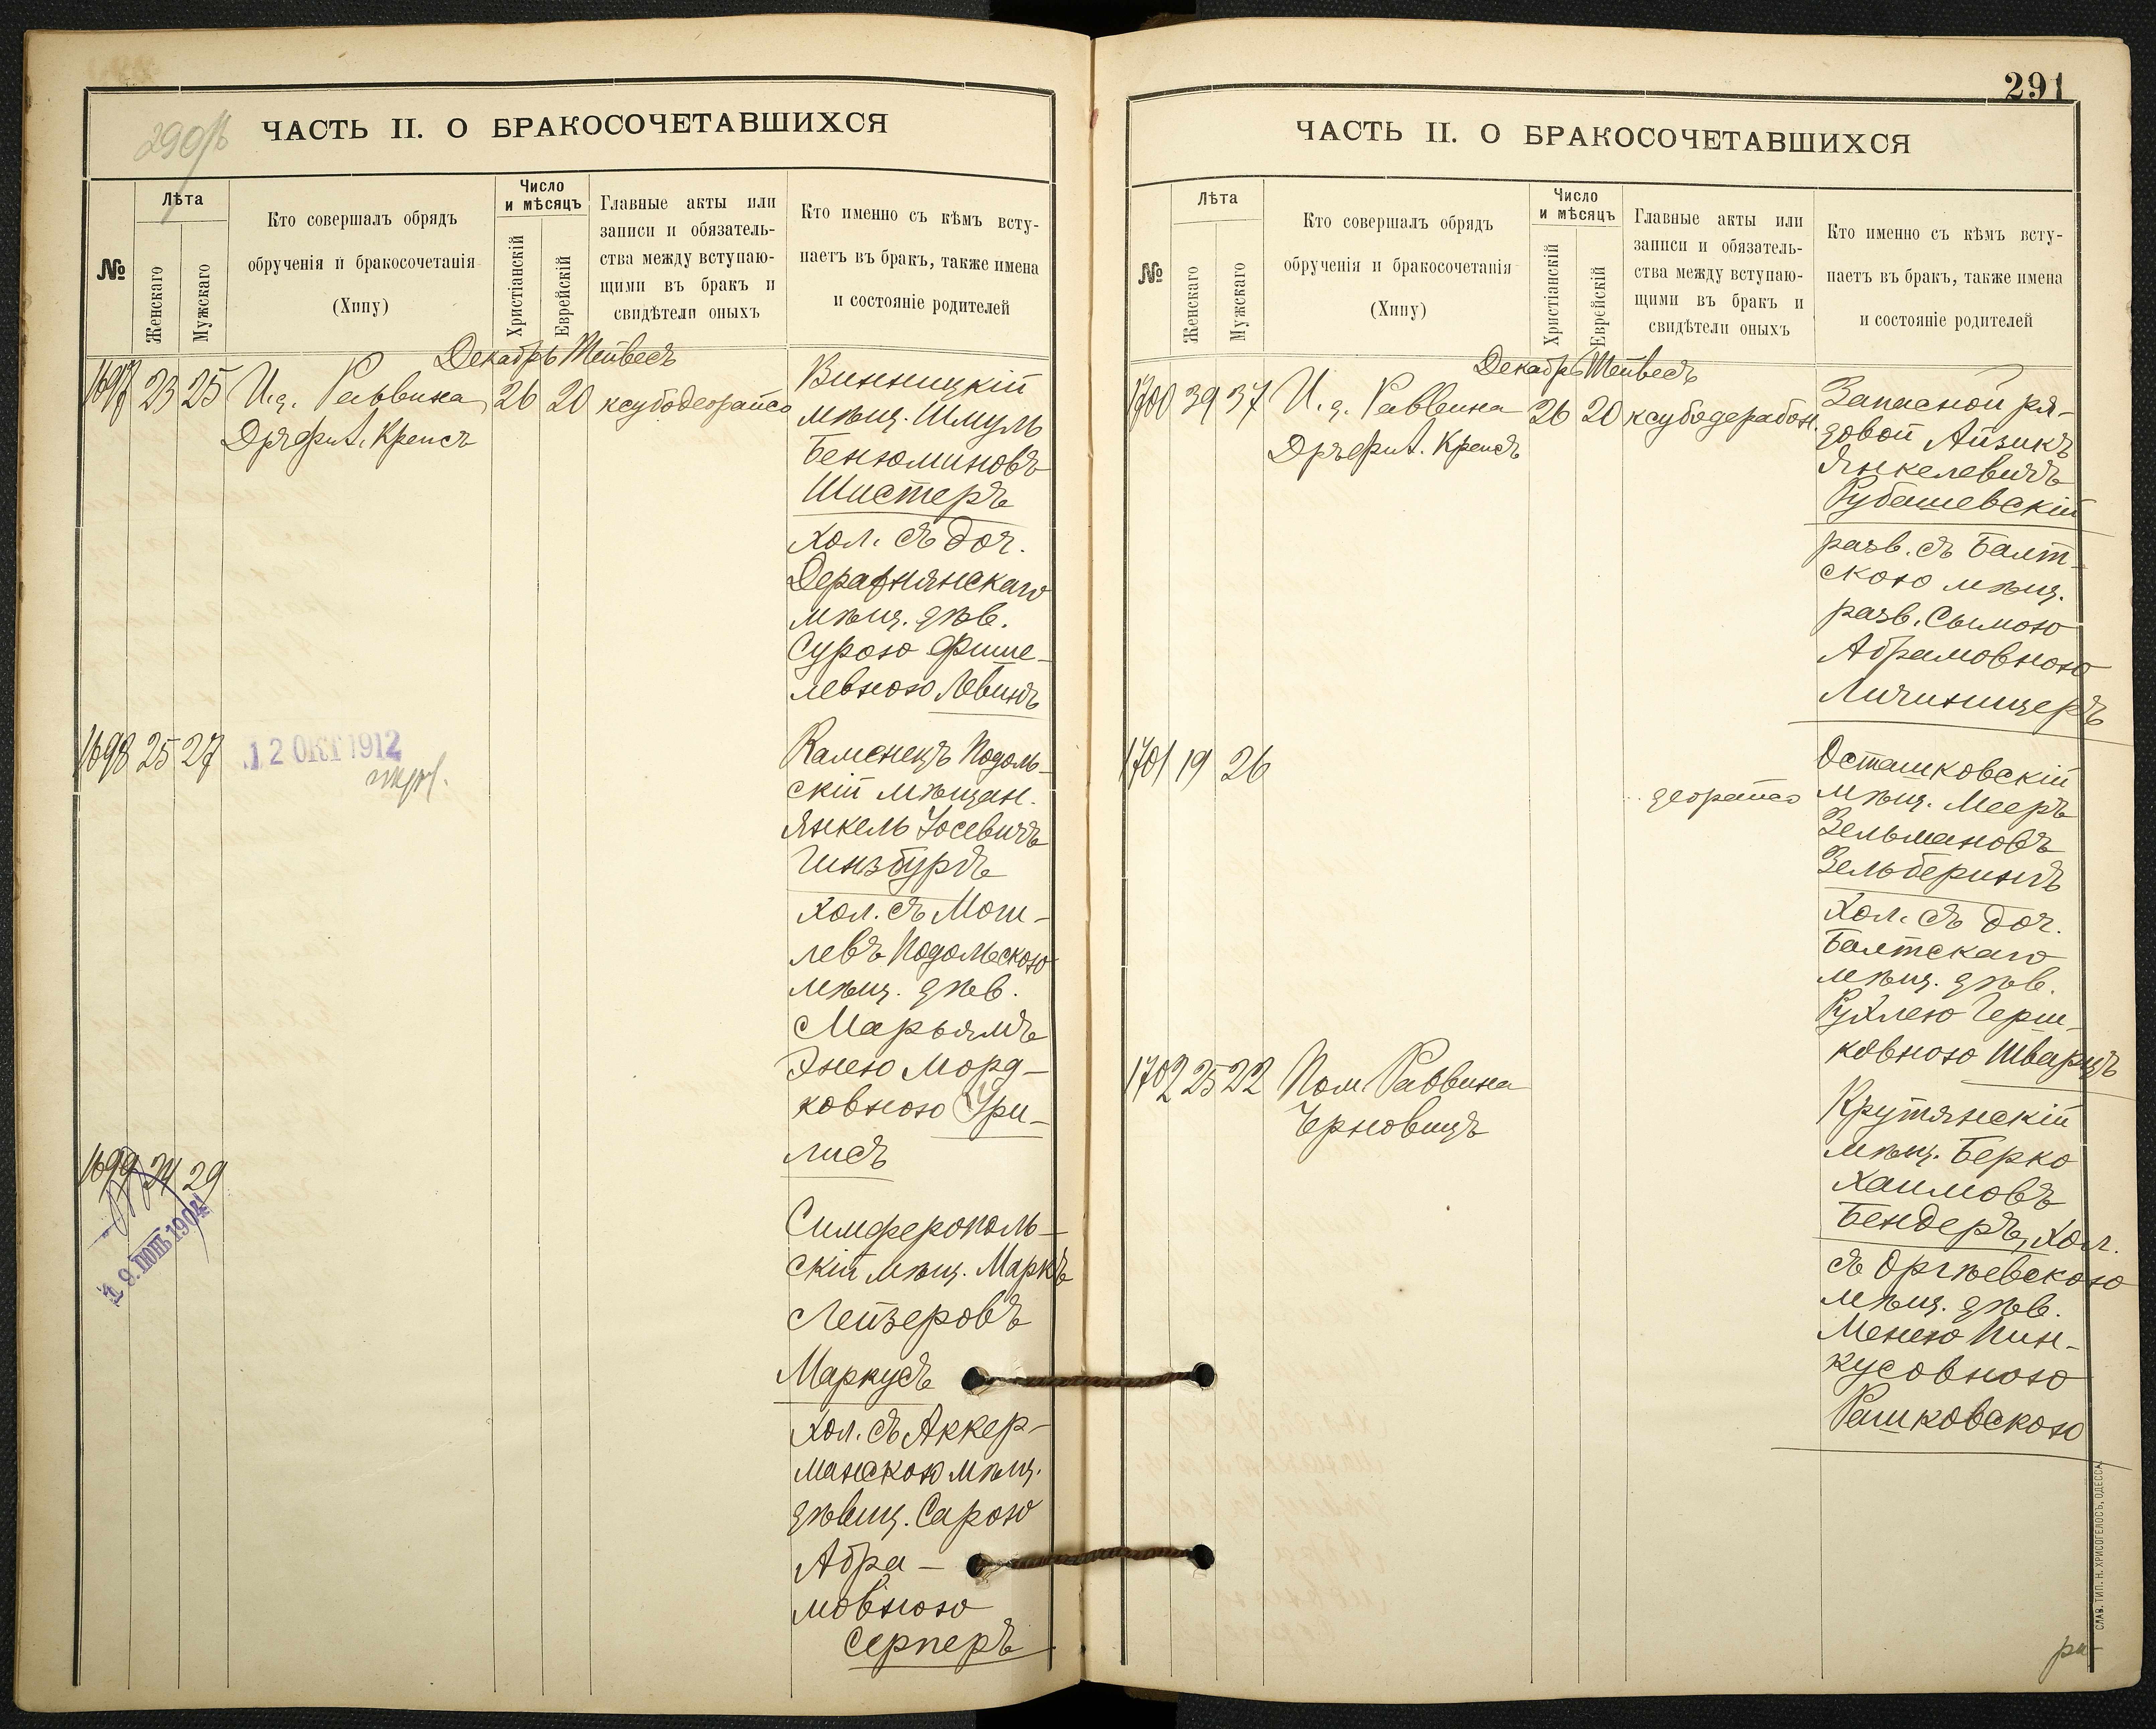 290об
ЧАСТЬ II. О БРАКОСОЧЕТАВШИХСЯ
№
Лѣта
Женскаго
Мужскаго
Кто совершалъ обрядъ
обрученія и бракосочетанія
(Хипу)
Число
и мѣсяцъ
Христіанскій
Еврейскій
Главные акты или
записи и обязатель-
ства между вступаю-
щими въ бракъ и
свидѣтели оныхъ
Кто именно съ кѣмъ всту-
паетъ въ бракъ, также имена
и состояніе родителей
Декабрь Тейвесъ
1697 23 25 И. д. Раввина 26 20
Др Фил. Крепсъ
Винницкій
мѣщ. Шмуль
Бенюминовъ
Шистеръ
хол. съ доч.
Деражнянскаго
мѣщ. дѣв.
Сурою Фише-
левною Левинъ
1698 25 27
12 ОКТ 1912
Каменецъ Подоль-
скій мѣщан.
Янкель Іосевичъ
Гинзбургъ
хол. съ Моги-
левъ Подольскою
мѣщ. дѣв.
Марьямъ
Энею Морд-
ковною Гри-
лисъ
1699 24 29
19. ІЮН 1904
Симферополь-
скій мѣщ. Маркъ
Лейзеровъ
Маркусъ
хол. съ Аккер-
манскою мѣщ.
дѣвиц. Сарою
Абра-
мовною
Серперъ
291
ЧАСТЬ II. О БРАКОСОЧЕТАВШИХСЯ
№
Лѣта
Женскаго
Мужскаго
Кто совершалъ обрядъ
обрученія и бракосочетанія
(Хипу)
Число
и мѣсяцъ
Христіанскій
Еврейскій
Главные акты или
записи и обязатель-
ства между вступаю-
щими въ бракъ и
свидѣтели оныхъ
Кто именно съ кѣмъ всту-
паетъ въ бракъ, также имена
и состояніе родителей
Декабрь Тейвесъ
1700 39 37 И. д. Раввина 26 20
Др Фил. Крепсъ
Запасной ря-
довой Айзикъ
Янкелевичъ
Рубашевскій
разв. съ Балт-
скою мѣщ.
разв. Сымою
Абрамовною
Личиницеръ
1701 19 26
Осташковскій
мѣщ. Мееръ
Зельмановъ
Зельберингъ
хол. съ доч.
Балтскаго
мѣщ. дѣв.
Рухлею Герш-
ковною Шварцъ
1702 25 22 Пом. Раввина
Черновицъ
Крутянскій
мѣщ. Берко
Хаимовъ
Бендеръ, хол.
съ Оргѣевскою
мѣщ. дѣв.
Менею Пин-
кусовною
Рашковскою
СЛАВ. ТИП. Н. ХРИСОГЕЛОСЪ, ОДЕССА.